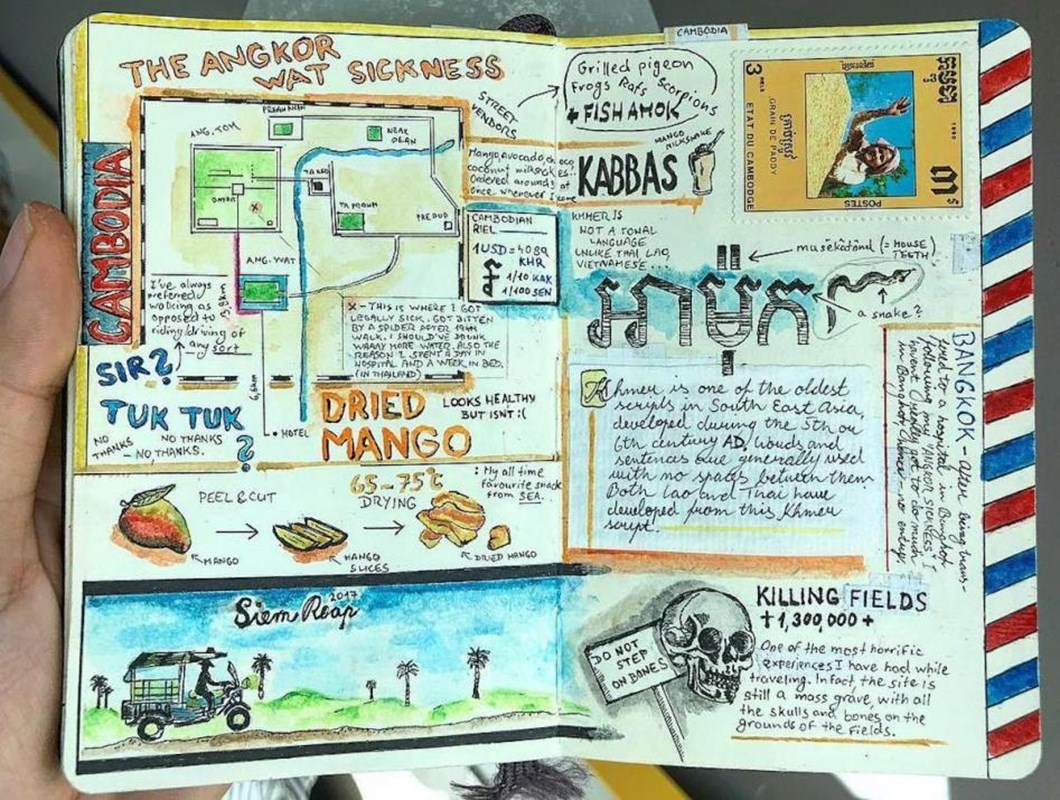 THE ANGKOR
WAT SICKNESS
CAMBODIA
ANG. TOM
PREAH NEAN
NEAK
PEAN
TA PROHM
PRE RUP
ANG. WAT
I've always
preferred
walking as
opposed to
riding/driving of
any sort
SIR?
TUK TUK
?
NO THANKS
NO THANKS
— NO THANKS.
HOTEL
STREET
VENDORS
coconut milkshakes!
Ordered around 5 at
once wherever I
CAMBODIAN
RIEL
1 USD = 4089
KHR
1/10 KAK
1/100 SEN
X - THIS IS WHERE I GOT
LEGALLY SICK. GOT BITTEN
BY A SPIDER AFTER
WALK. I SHOULD'VE DRUNK
WAAAY MORE WATER. ALSO THE
REASON I SPENT A DAY IN
HOSPITAL AND A WEEK IN BED.
(IN THAILAND)
DRIED
MANGO
LOOKS HEALTHY
BUT ISNT :(
: My all time
favourite snack
from SEA.
PEEL & CUT
65-75°C
DRYING
MANGO
MANGO
SLICES
DRIED MANGO
Siem Reap
2017
CAMBODIA
Grilled pigeon
Frogs Rats Scorpions
+ FISH AMOK
KABBAS
MANGO
MILKSHAKE
3
GRAIN DE PADDY
ETAT DU CAMBODGE
POSTES
1990
KHMER IS
NOT A TONAL
LANGUAGE
UNLIKE THAI, LAO,
VIETNAMESE...
musĕkătônd (= MOUSE
TEETH)
a snake?
Khmer is one of the oldest
scripts in South East Asia,
developed during the 5th or
6th century AD. Words and
sentences are generally used
with no spaces between them
Both Lao and Thai have
developed from this Khmer
script.
BANGKOK - after being trans-
fered to a hospital in Bangkok
following my "ANGKOR SICKNESS" I
havent really got to do much
in Bangkok. - no energy.
DO NOT
STEP
ON BONES
KILLING FIELDS
†1,300,000+
One of the most horrific
experiences I have had while
traveling. Infact, the site is
still a mass grave, with all
the skulls and bones on the
grounds of the fields.